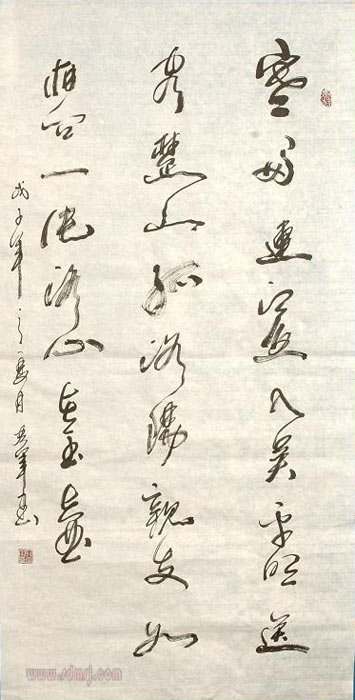 寒雨連江夜入吴平明送
客楚山孤洛陽親友如
相问一片冰心在玉壶
戊子年
www.sdmsj.com